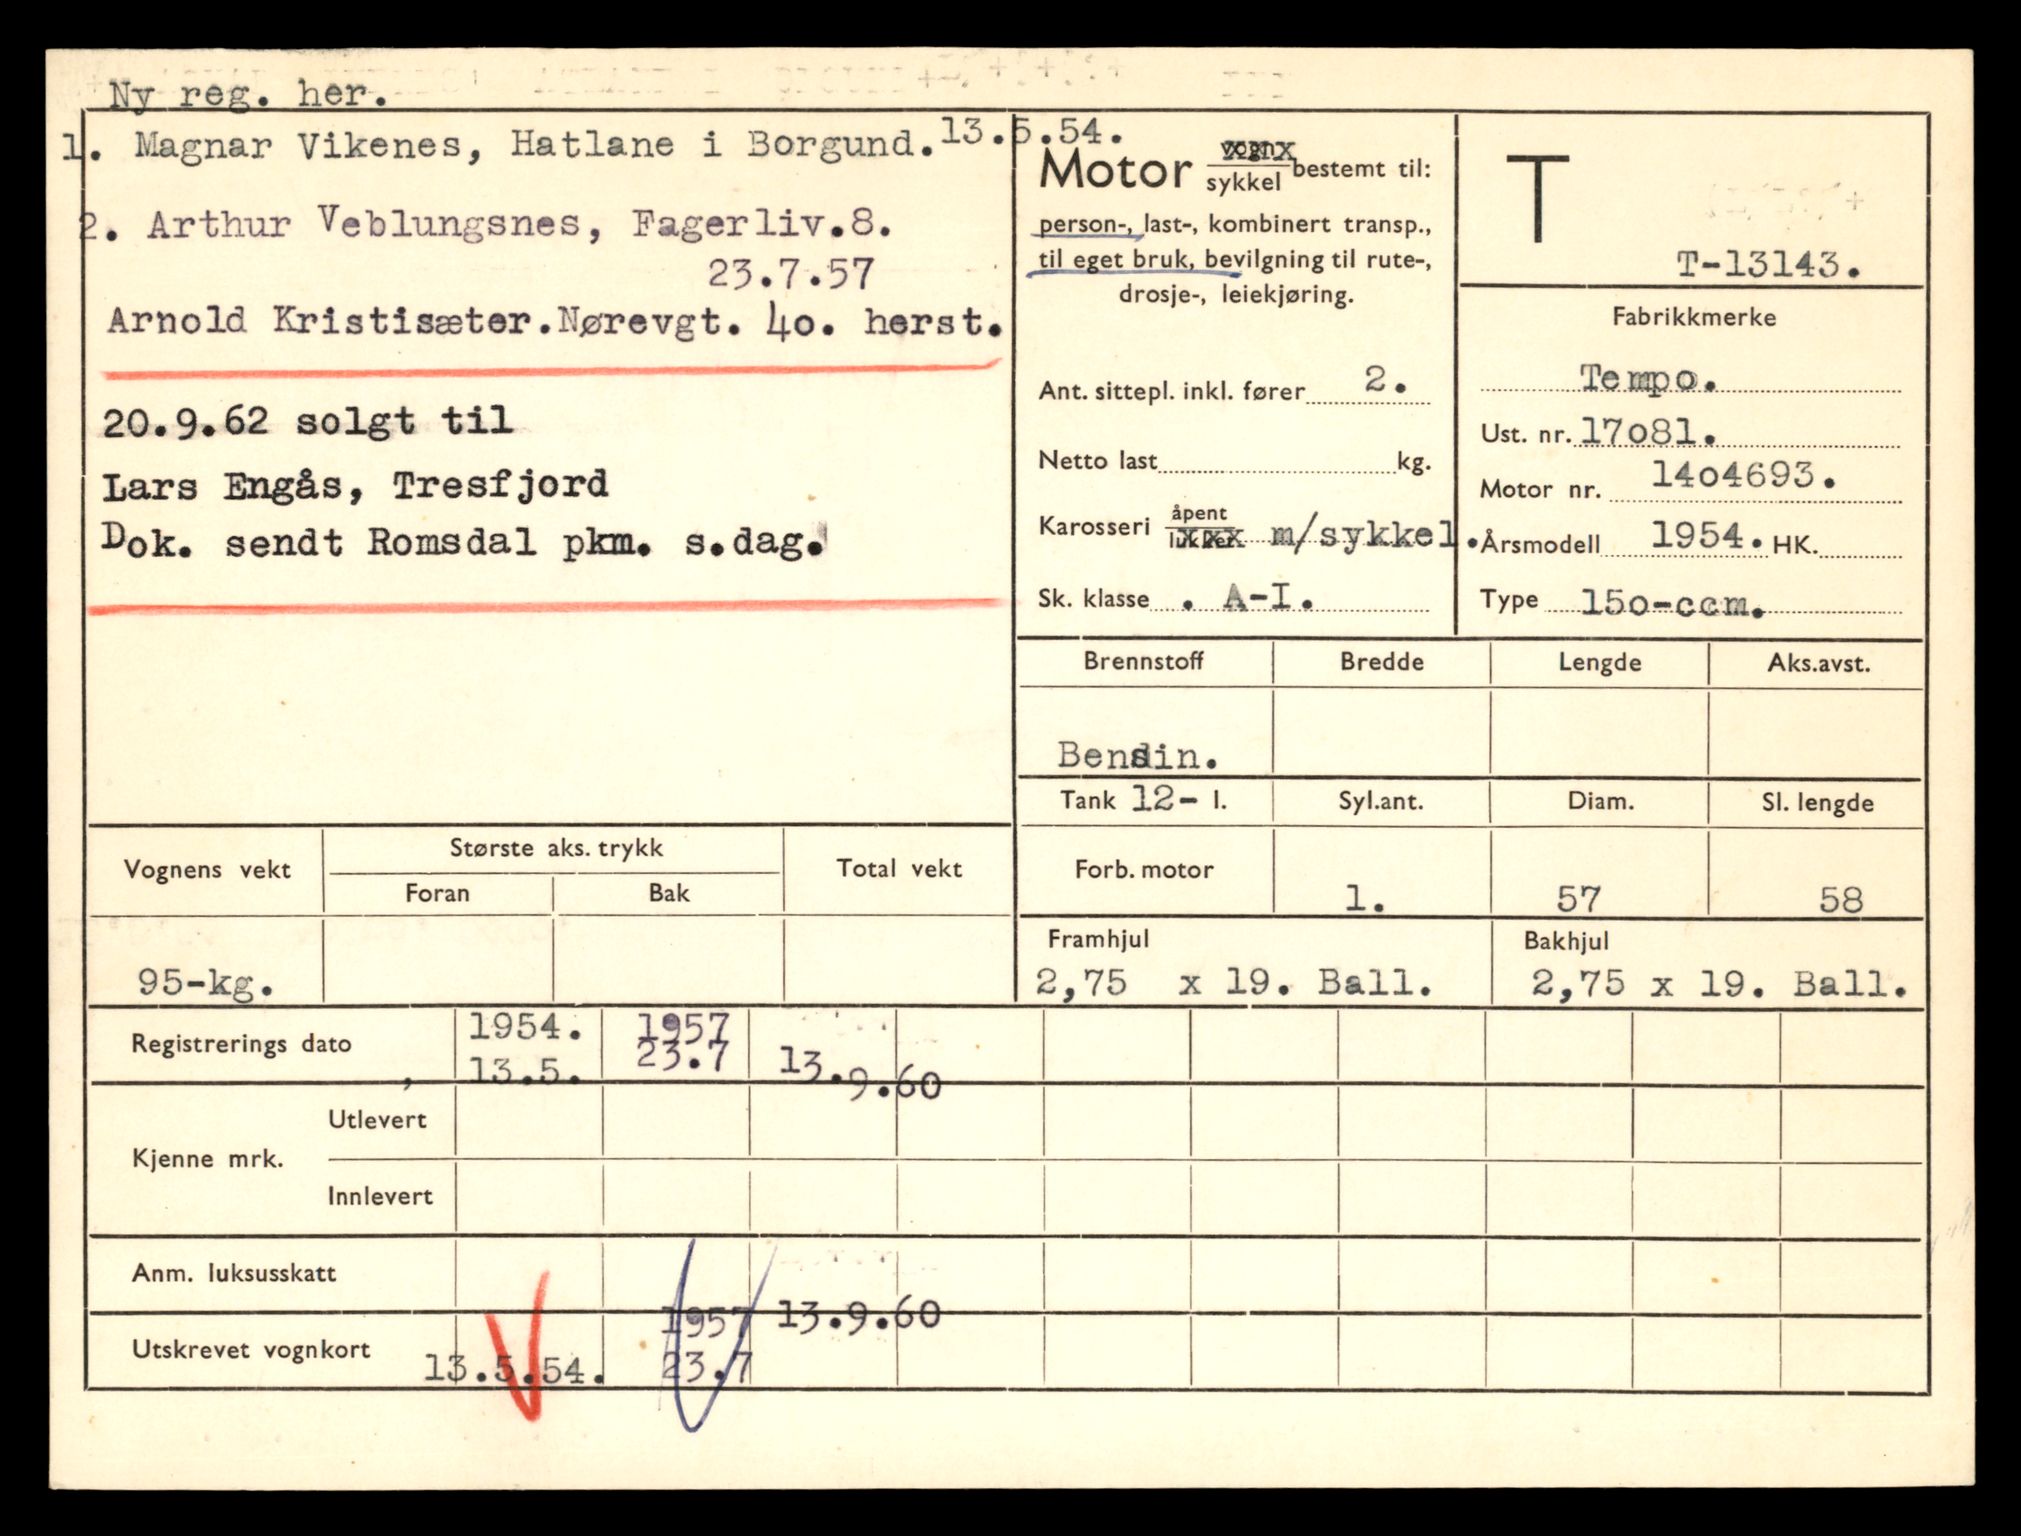 Ny reg. her.
1. Magnar Vikenes, Hatlane i Borgund. 13.5.54.
2. Arthur Veblungsnes, Fagerliv.8.
23.7.57
Arnold Kristisæter.Nørevgt. 4o. herst.
20.9.62 solgt til
Lars Engås, Tresfjord
Dok. sendt Romsdal pkm. s.dag.
Motor vogn/sykkel bestemt til:
person-, last-, kombinert transp.,
til eget bruk, bevilgning til rute-,
drosje-, leiekjøring.
Ant. sittepl. inkl. fører 2.
Netto last kg.
Karosseri åpent/lukket m/sykkel.
Sk. klasse . A-I.
T
T-13143.
Fabrikkmerke
Tempo.
Ust. nr. 17o81.
Motor nr. 14o4693.
Årsmodell 1954. HK.
Type 15o-ccm.
Brennstoff Bredde Lengde Aks.avst.
Bensin.
Tank 12- l. Syl.ant. Diam. Sl. lengde
Forb. motor 1. 57 58
Framhjul Bakhjul
2,75 x 19. Ball. 2,75 x 19. Ball.
Vognens vekt Største aks. trykk Total vekt
Foran Bak
95-kg.
Registrerings dato 1954. 1957
13.5. 23.7 13.9.60
Kjenne mrk. Utlevert
Innlevert
Anm. luksusskatt
Utskrevet vognkort 1957 13.9.60
13.5.54. 23.7